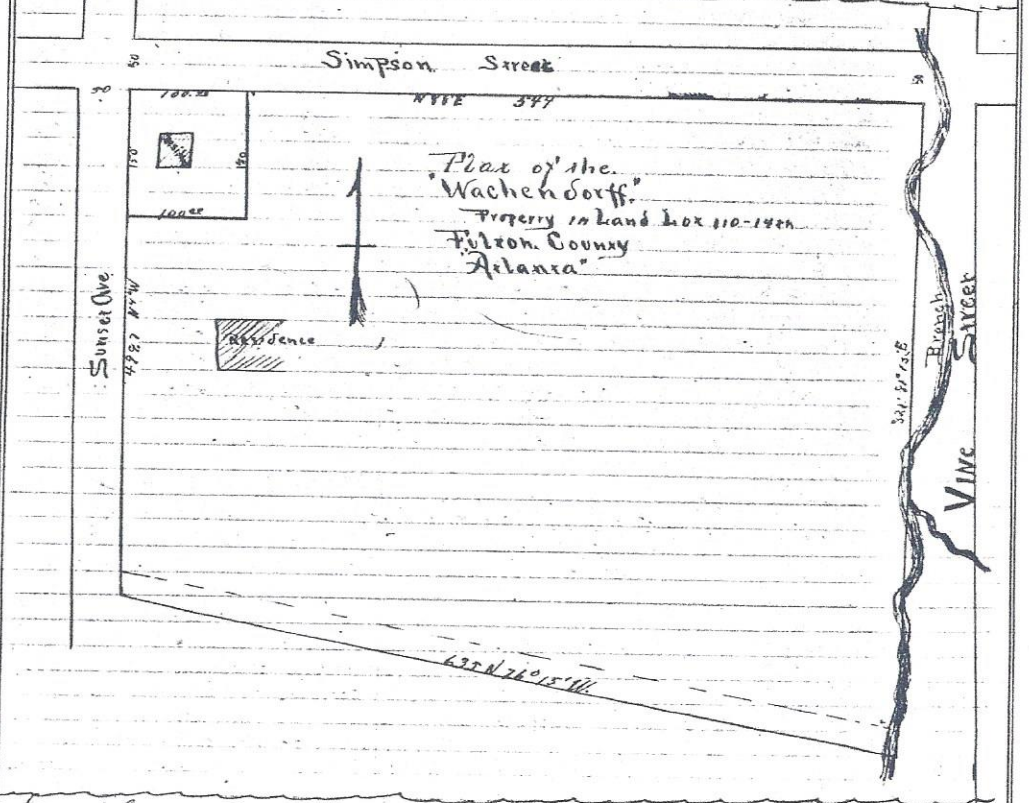 Simpson Street
50
50
50
100.00
N88E 549
150
150
100.00
Plat of the
"Wachendorff"
Property in Land Lot 110-14th
Fulton County
"Atlanta"
Sunset Ave
Residence
Branch
Vine Street
635 N 76° 15' W.